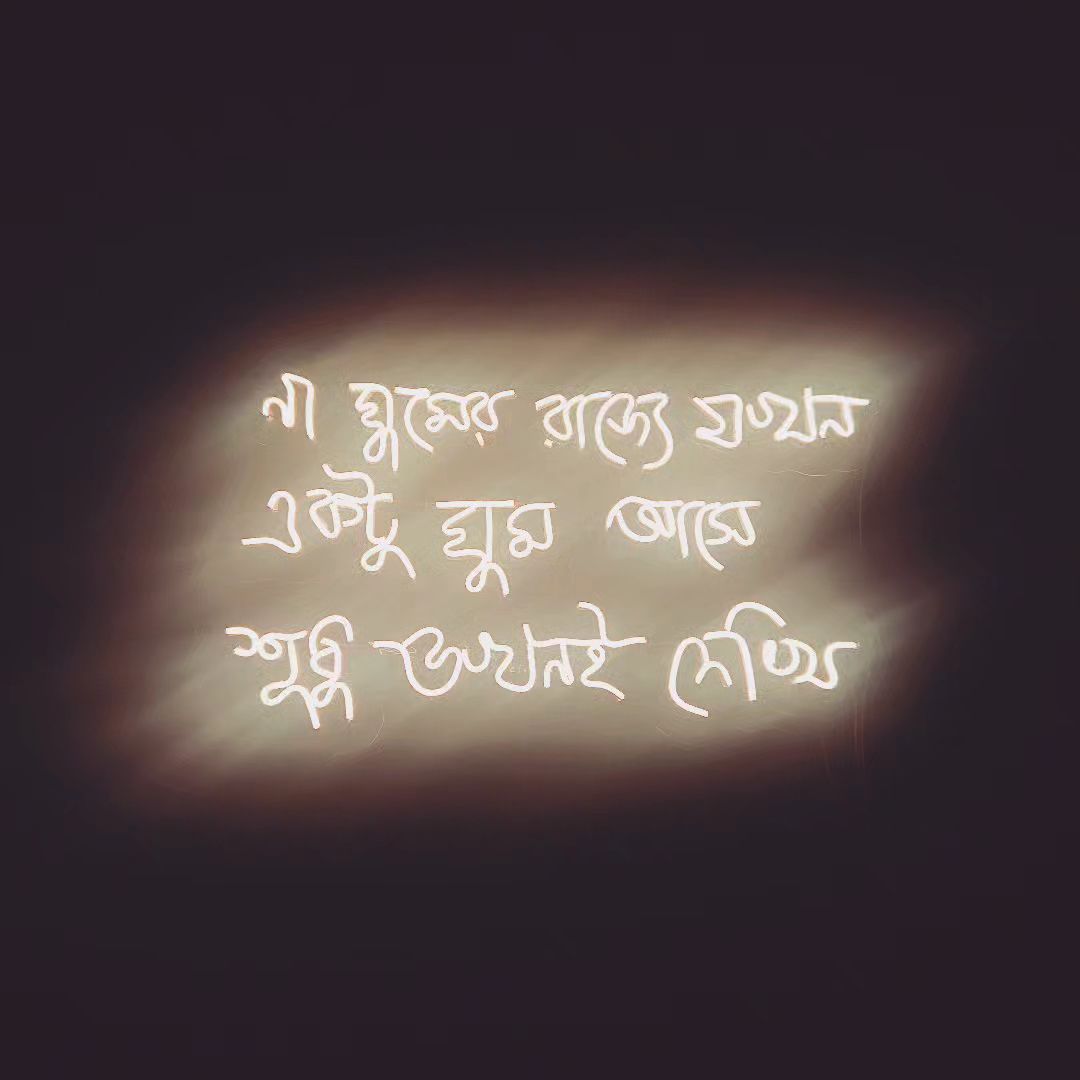 না ঘুমের রাজ্যে যখন
একটু ঘুম আসে
শুধু তখনই দেখি